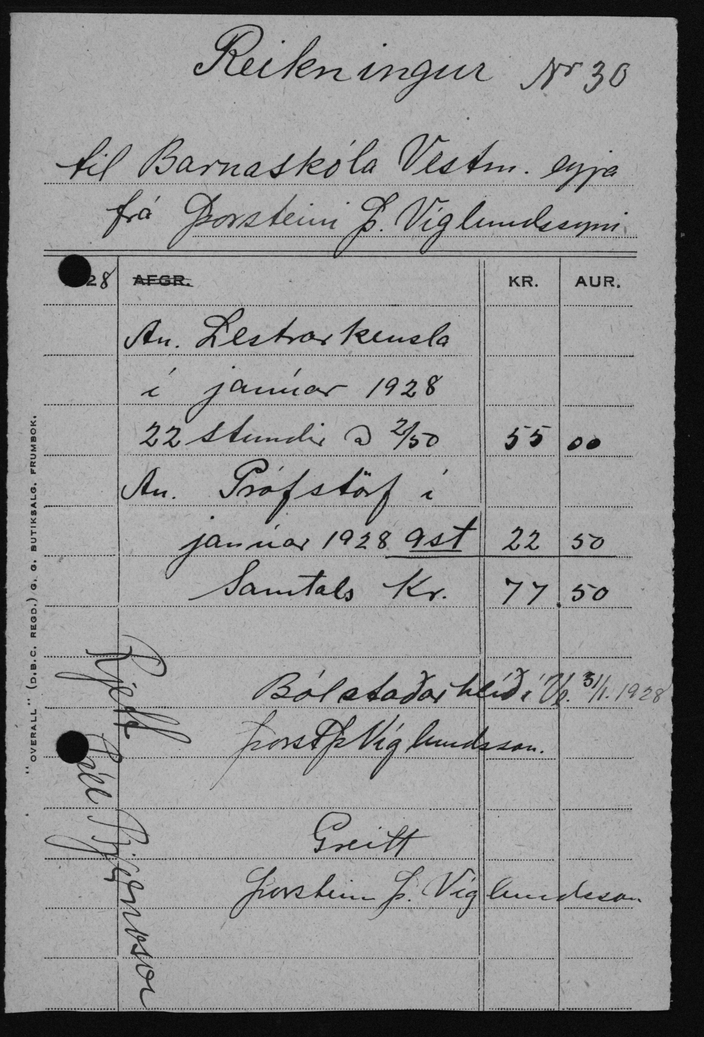 Reikningur Nr 30
til Barnaskóla Vestm. eyja
frá Þorsteini Þ. Víglundssyni
28 AFGR. KR. AUR.
An. Lestrarkensla
í janúar 1928
22 stundir à 2/50 55 00
An. Prófstörf í
janúar 1928 9 st 22 50
Samtals Kr. 77.50
Bólstaðarhlíð í Ve. 31/1. 1928
Þorst Þ Víglundsson.
Greitt
Þorsteinn Þ. Víglundsson
Rjett
Páll Bjarnason
"OVERALL" (D.B.C. REGD.) G. G. BUTIKSALG. FRUMBOK.